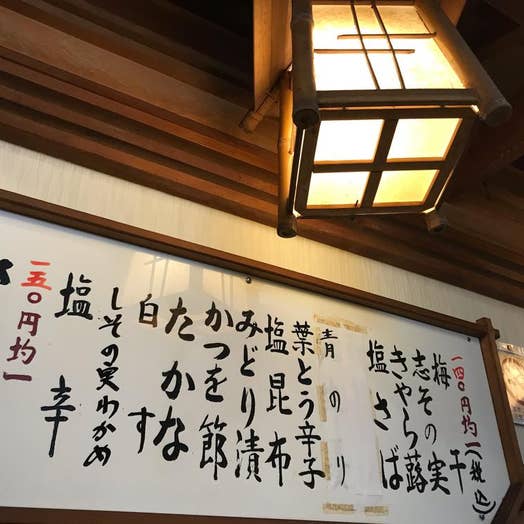 一四〇円均一(税込)
梅干
志その実
きゃら蕗
塩さば
青のり
葉とう辛子
塩昆布
みどり漬
かつを節
たかな
白す
しその実わかめ
塩辛
一五〇円均一